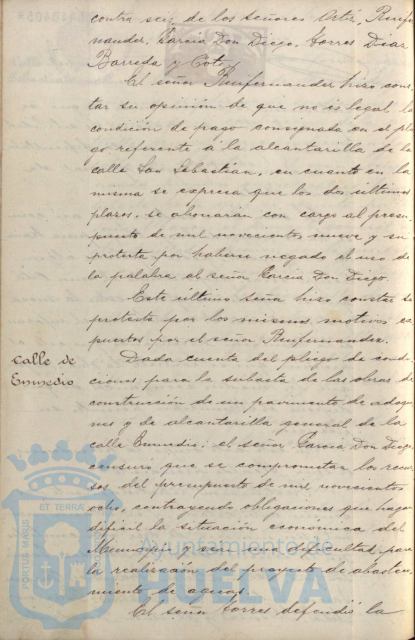 contra seis de los Señores Ortiz, Renfer-
nander, García Don Diego, Torres Diaz
Barreda y Coto.
El señor Renfernander hizo cons
tar su opinión de que no es legal la
condición de pago consignada en el plie
go referente á la alcantarilla de la
calle San Sebastián, en cuanto en la
misma se expresa que los dos últimos
plazos, se abonarán con cargo al presu
puesto de mil novecientos nueve y su
protesta por haberse negado el uso de
la palabra al señor García Don Diego.
Este último señor hizo constar su
protesta por los mismos motivos ex
puestos por el señor Renfernander.
calle de
Enmedio
Dada cuenta del pliego de condi
ciones para la subasta de las obras de
construcción de un pavimento de adoqui
nes y de alcantarilla general de la
calle Enmedio; el señor García Don Diego
censura que se comprometan los recur
sos del presupuesto de mil novecientos
ocho, contrayendo obligaciones que hagan
dificil la situación económica del
Municipio y sean una dificultad para
la realización del proyecto de abastecі
miento de aguas.
El señor Torres defendió la
PORTUS MARIS
ET TERRAE
Ayuntamiento de
HUELVA